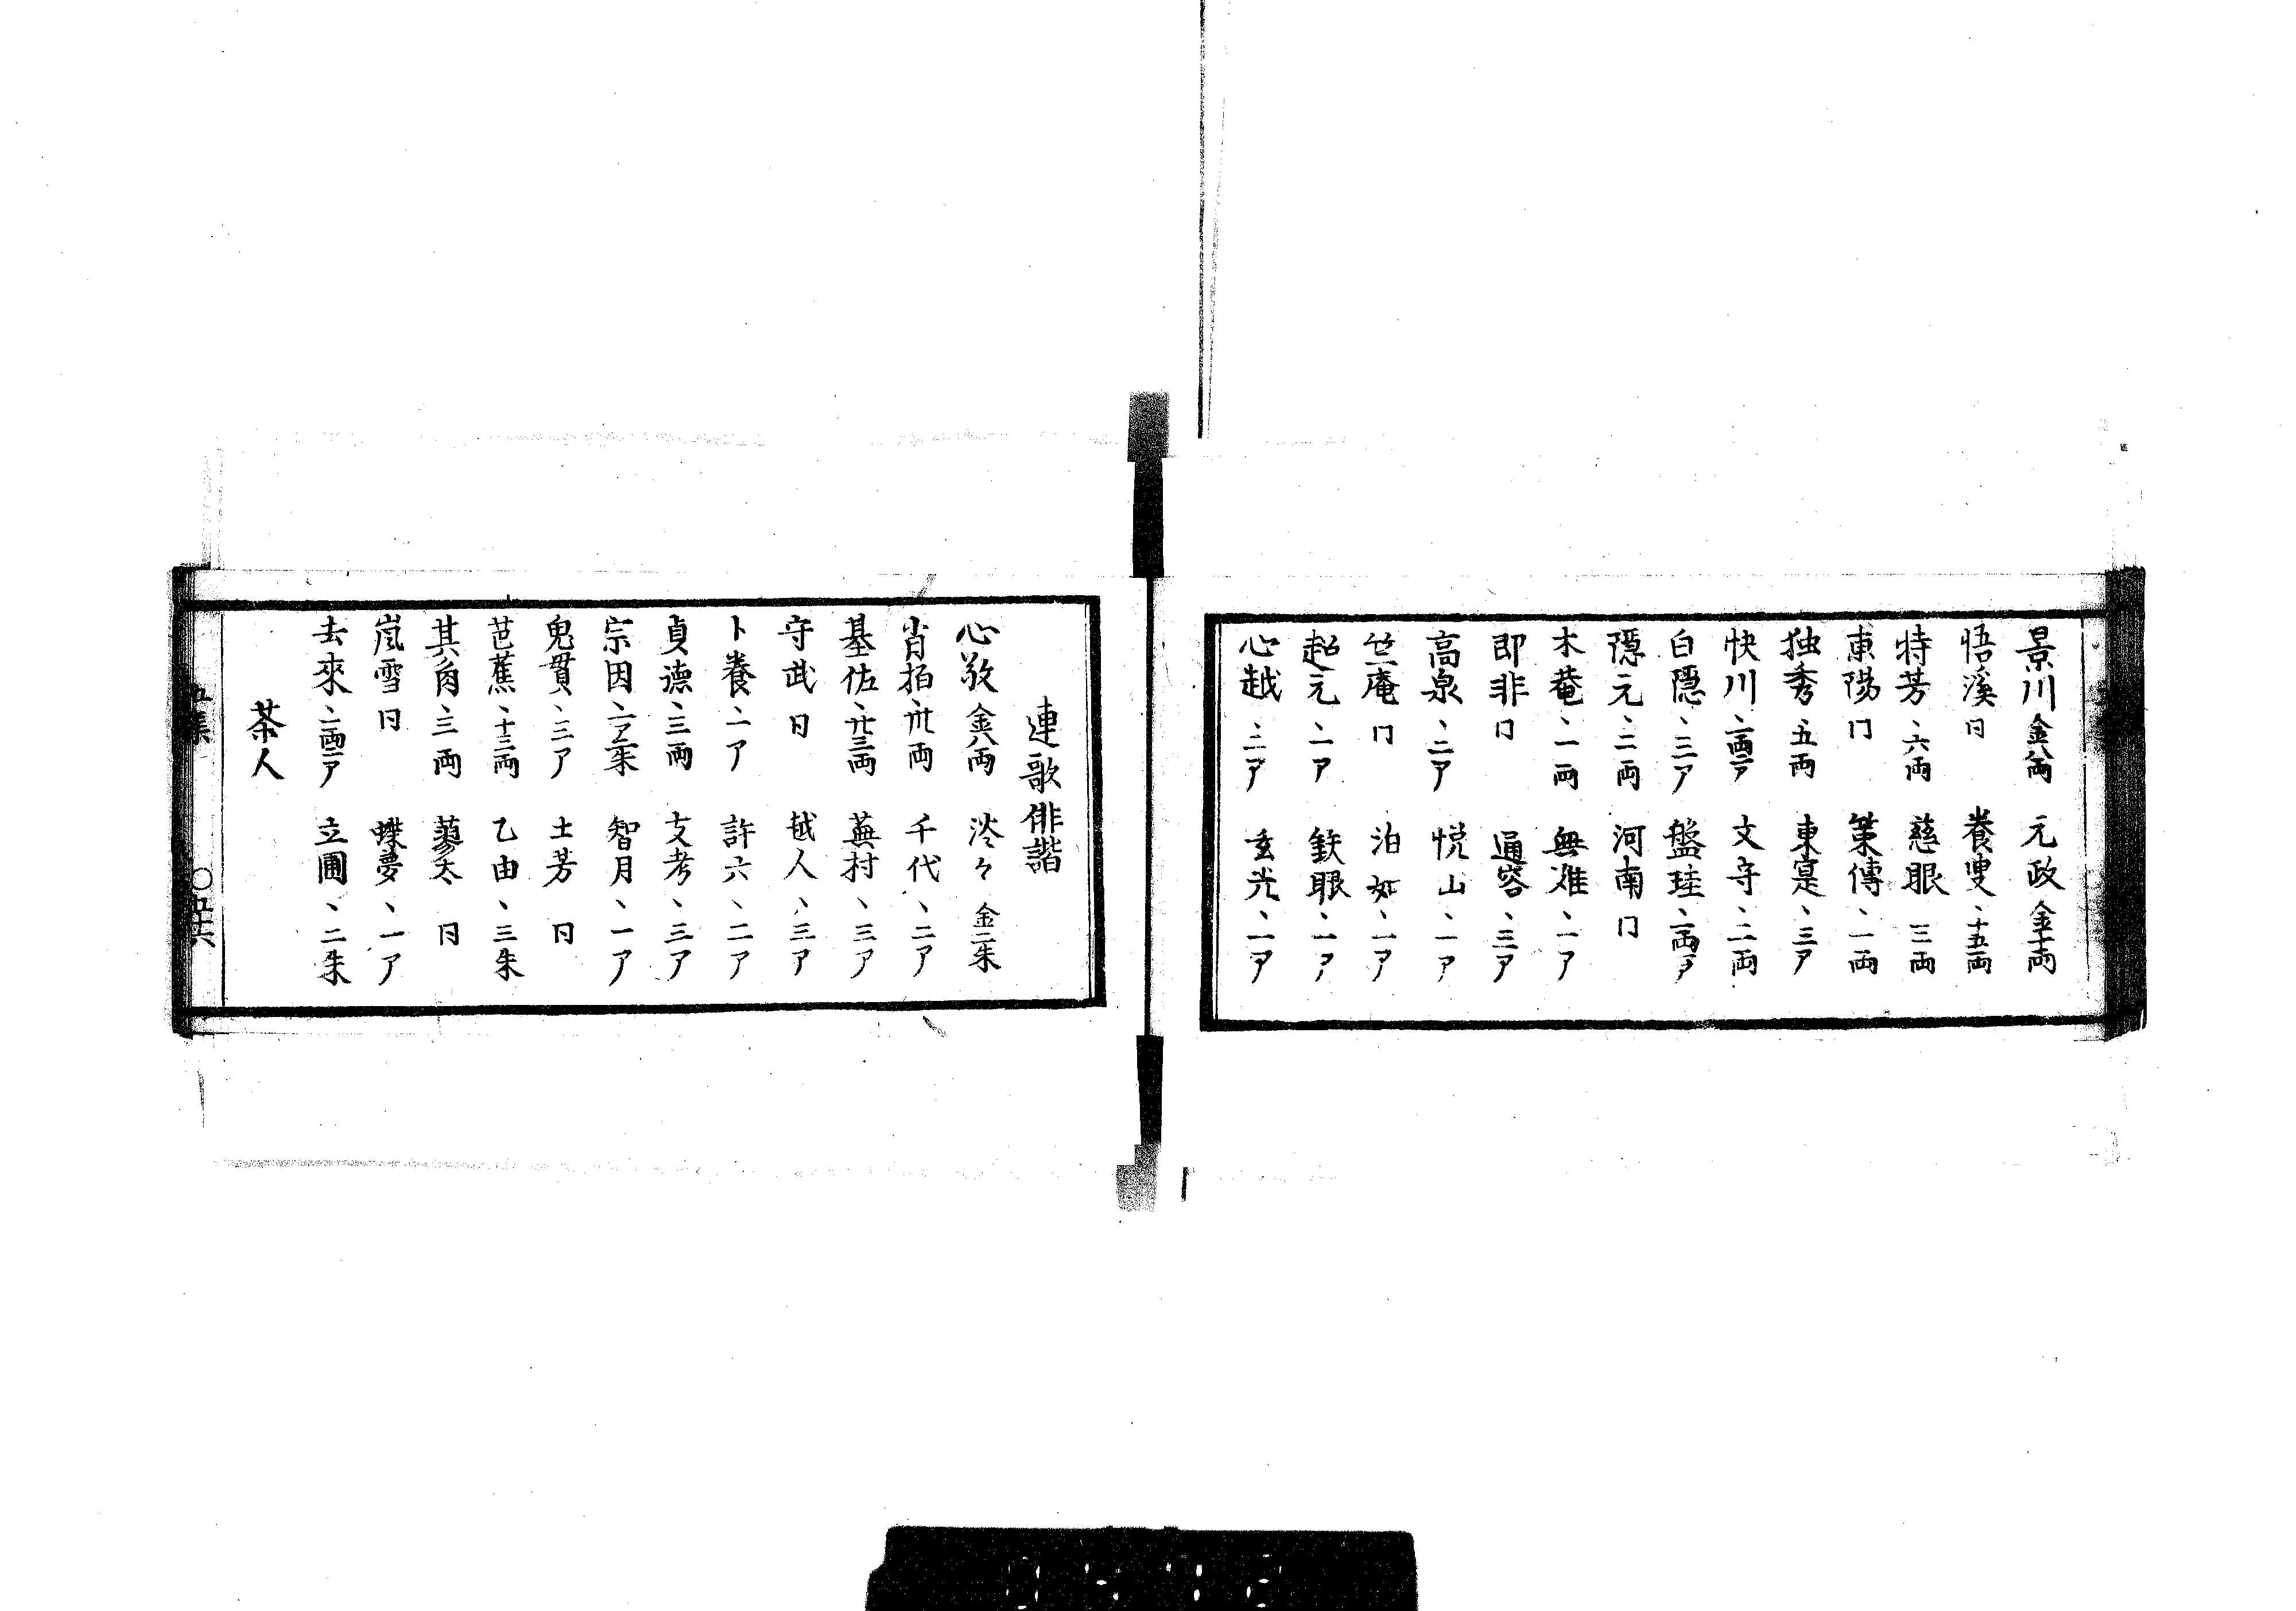 景川 金八両 元政 金十両
悟溪 日 養叟、十五両
特芳、六両 慈眼 三両
東陽 门 策傳、一両
独秀 五両 東寔、三ア
快川、二両二ア 文守、二両
白隠、三ア 盤珪、二両ア
隠元、二両 河南 门
木菴、一両 無难、一ア
即非 门 通容、三ア
高泉、二ア 悦山、一ア
竺庵 门 泊如、一ア
超元、一ア 鉄眼、一ア
心越、二ア 玄光、一ア
連歌俳諧
心敬 金八両 淡々 金二朱
肖柏、卅両 千代、二ア
基佐、廿三両 蕪村、三ア
守武 日 越人、三ア
卜養、一ア 許六、二ア
貞徳、三両 支考、三ア
宗因、二ア二朱 智月、一ア
鬼貫、三ア 土芳 日
芭蕉、十三両 乙由、三朱
其角、三両 蓼太 日
嵐雪 日 蝶夢、一ア
去來、二両一ア 立圃、二朱
茶人
五集 〇五十六